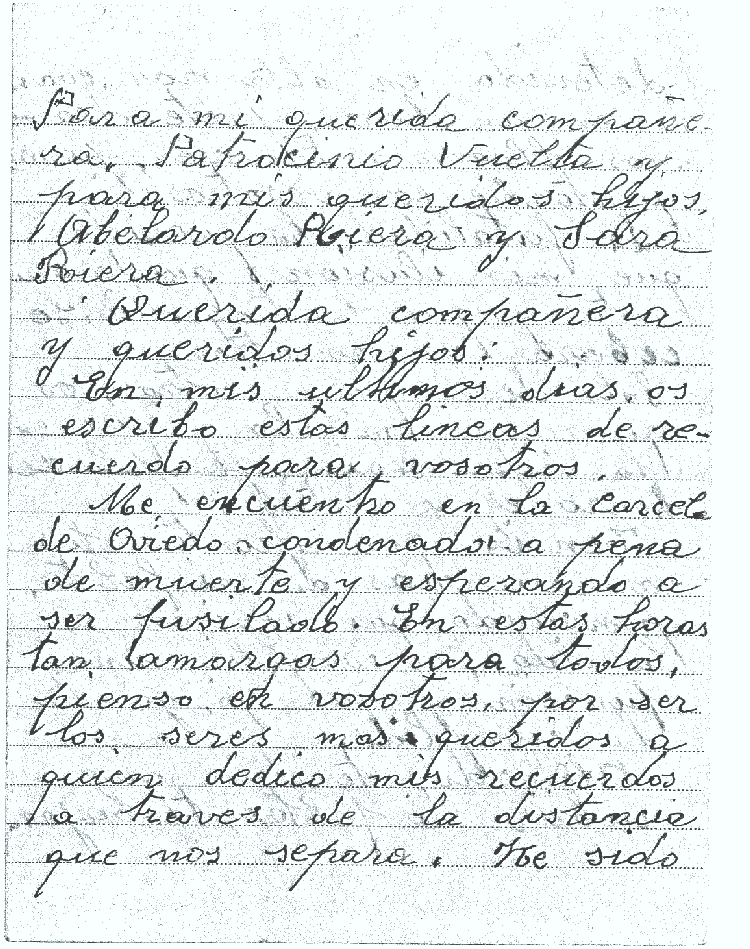 Para mi querida compañe-
ra, Patrocinio Vuelta y
para mis queridos hijos,
Abelardo Riera y Sara
Riera.
Querida compañera
y queridos hijos:
En mis ultimos dias os
escribo estas lineas de re-
cuerdo para vosotros.
Me encuentro en la Carcel
de Oviedo condenado a pena
de muerte y esperando a
ser fusilado. En estas horas
tan amargas para todos,
pienso en vosotros, por ser
los seres mas queridos a
quien dedico mis recuerdos
a traves de la distancia
que nos separa. He sido